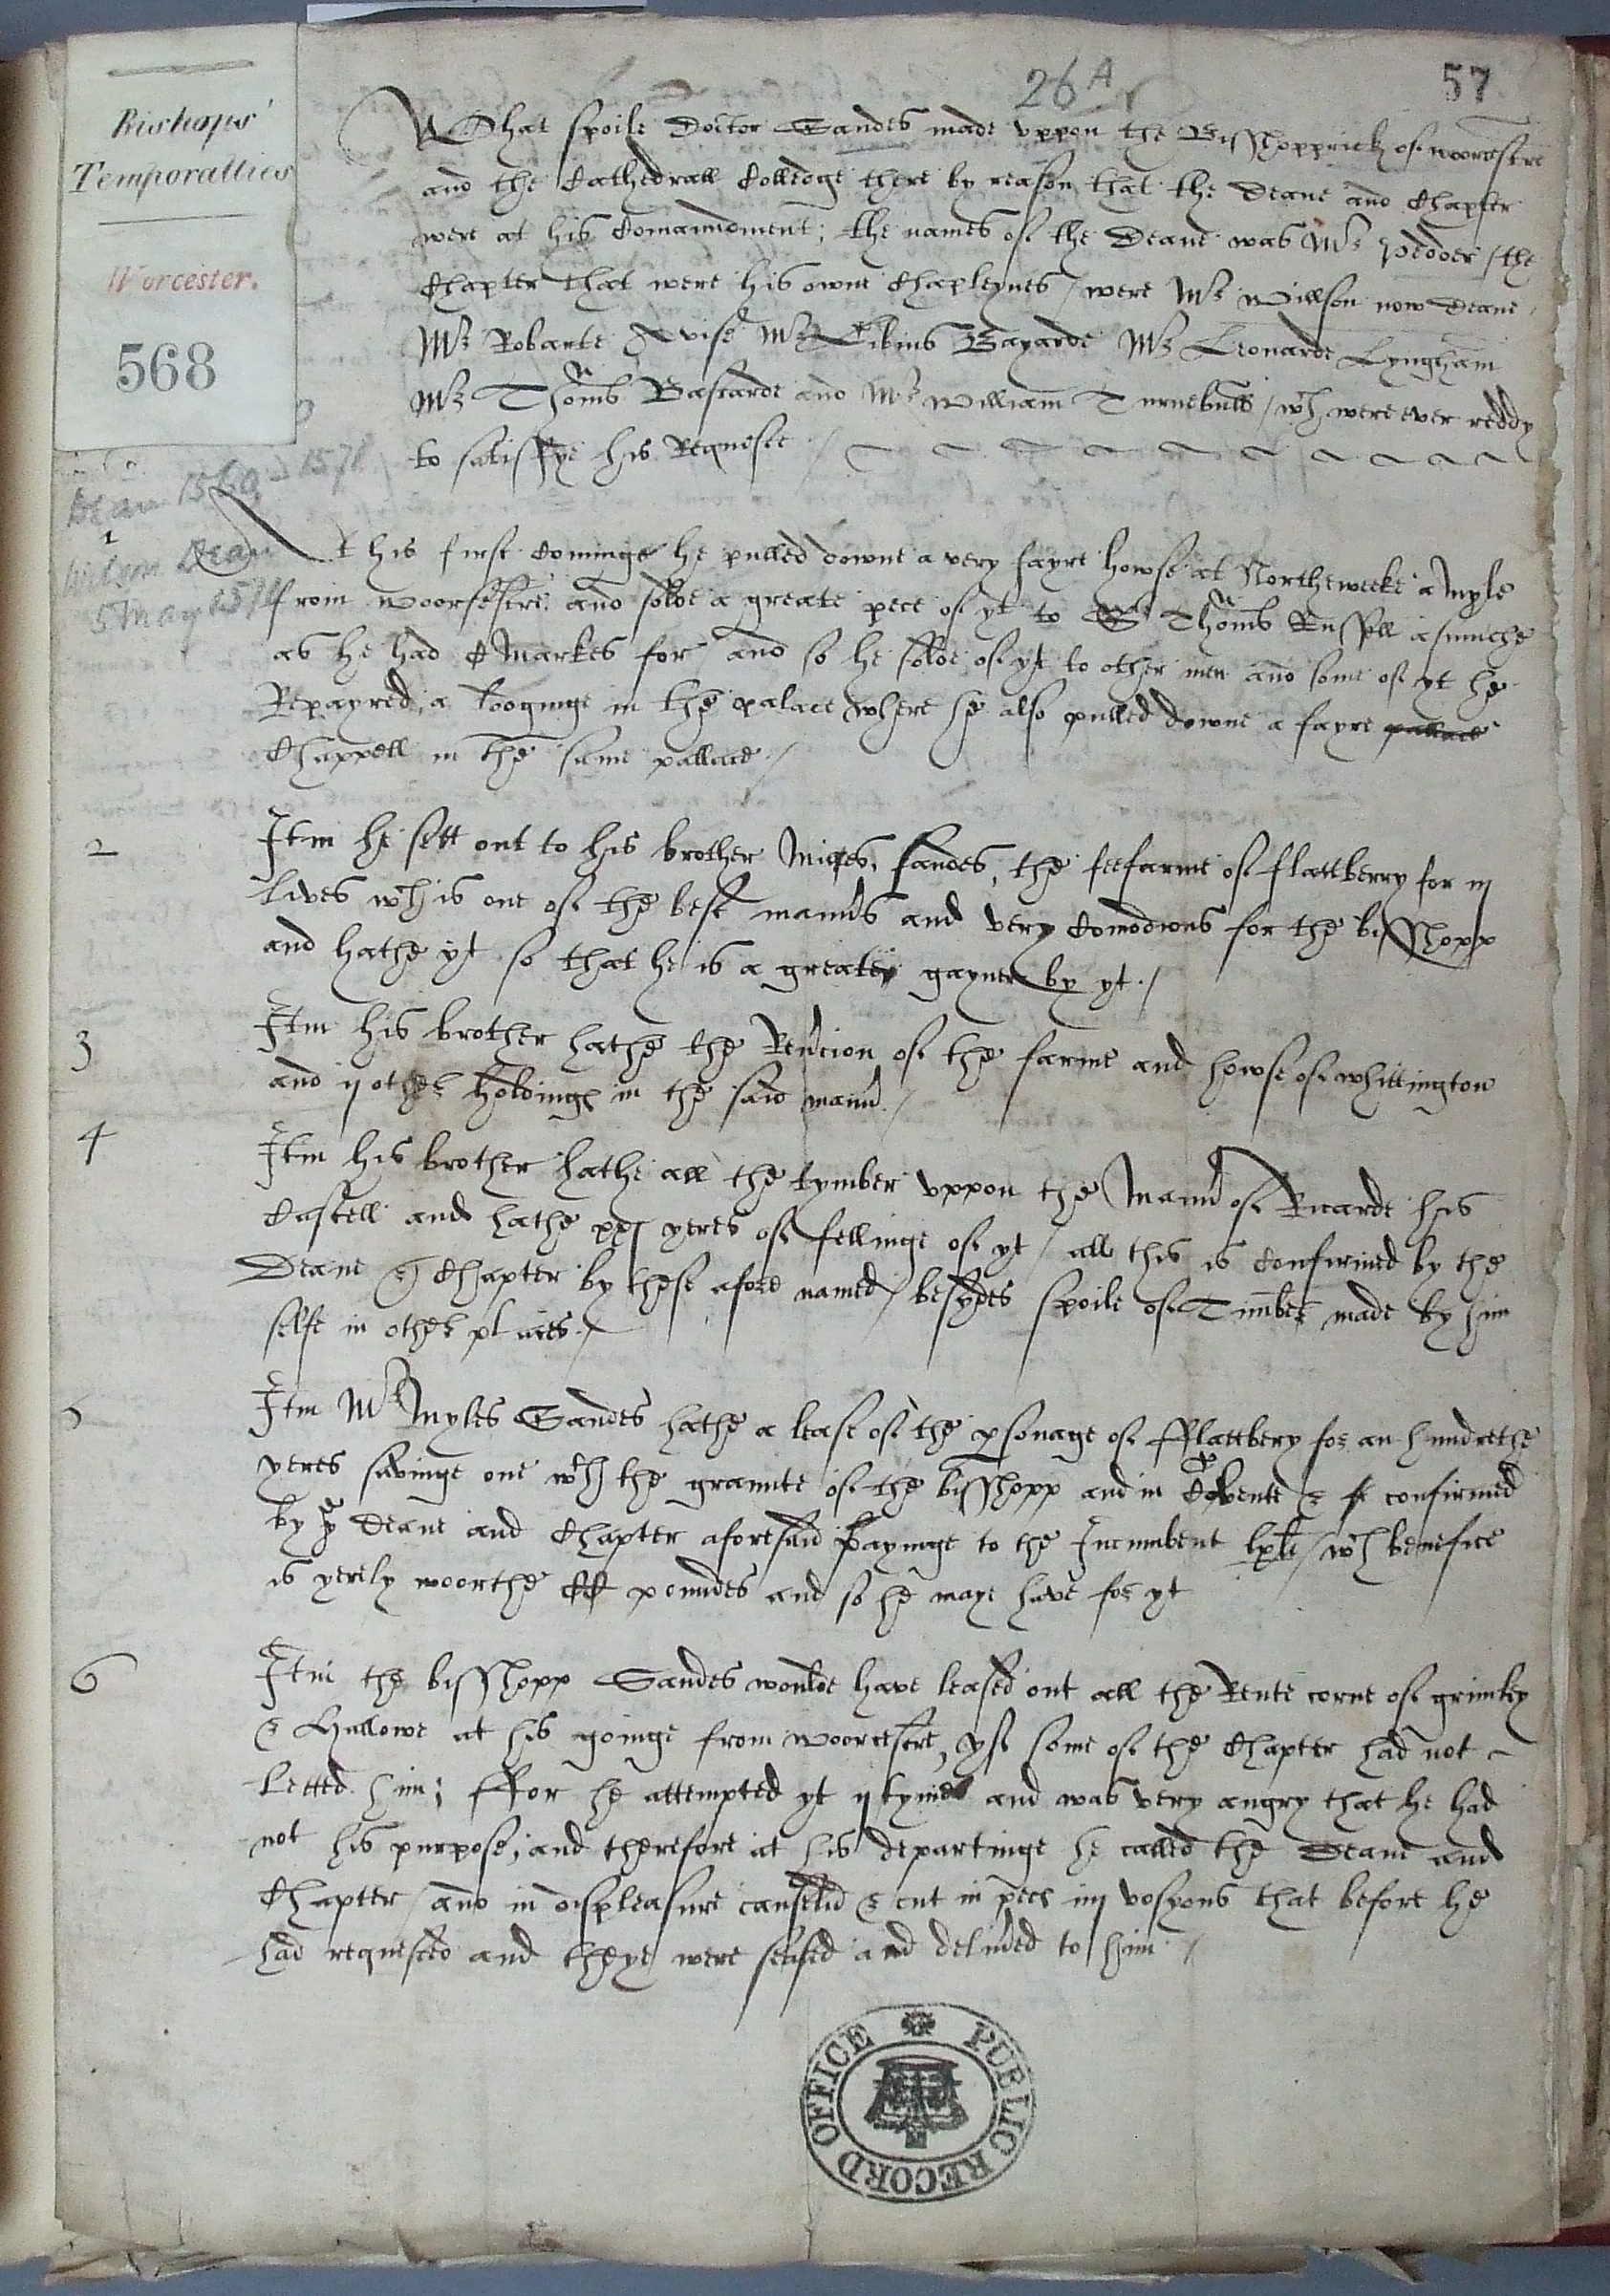 Bishops'
Temporalties
Worcester.
568
26A
57
What spoile Doctor Sandes made vppon the Bisshopprick of woorcestre
and the Cathedrall Colledge there by reason that the Deane and Chapter
were at his Comaundment; the names of the Deane was Mr Pedder / the
Chapter that were his owne Chapleynes / were Mr Willson now Deane,
Mr Robarte Avise Mr Bayarde Mr Leonarde Lyngham
Mr Thoms Bastarde and Mr William Turnebull / wch were ever reddy
to satisfye his Requeste /
Dean 1560 - 1571
Wilson Dean
5 May 1571
1
At his first Cominge he pulled downe a very fayre howse at Northeweeke a myle
from woorsestre. and solde a greate pece of yt to Sr Thoms Russell asmuche
as he had C Markes for / and so he solde of yt to other men and some of yt he
Repayred, a lodginge in the palace where he also pulled downe a fayre pallace
Chappell in the same pallace /
2
Itm he sett out to his brother Miles Sandes, the feefarme of flattberry for iij
lives wch is one of the best manns and very Comodious for the bisshopp
and hathe yt so that he is a greate gayner by yt. /
3
Itm his brother hathe the Revcion of the farme and howse of whittington
and ij other holdings in the said mann. /
4
Itm his brother hathe all the tymber vppon the Mann of Ricarde his
Castell and hathe xxj yeres of fellinge of yt / all this is Confirmed by the
Deane & Chapter by these afore named / besydes spoile of Timber made by him
selfe in other places. /
5
Itm Mr Myles Sandes hathe a lease of the psonage of fflattbery for an hundrethe
yeres savinge one wth the graunte of the bisshopp and in & confirmed
by ye Deane and Chapter aforesaid payinge to the Incumbent lxli / wch benefice
is yerely woorthe CC poundes and so he maye have for yt
6
Itm the bisshopp Sandes woulde have leased out all the Rente corne of grimley
& Hallowe at his goinge from woorcestre, yf some of the Chapter had not
letted him; ffor he attempted yt ij tymes and was very angry that he had
not his purpose; and therefore at his departinge he called the Deane and
Chapter / and in displeasure canselid & cut in peces iiij vosyons that before he
had requested and theye were sealed and delived to him /
PUBLIC RECORD OFFICE